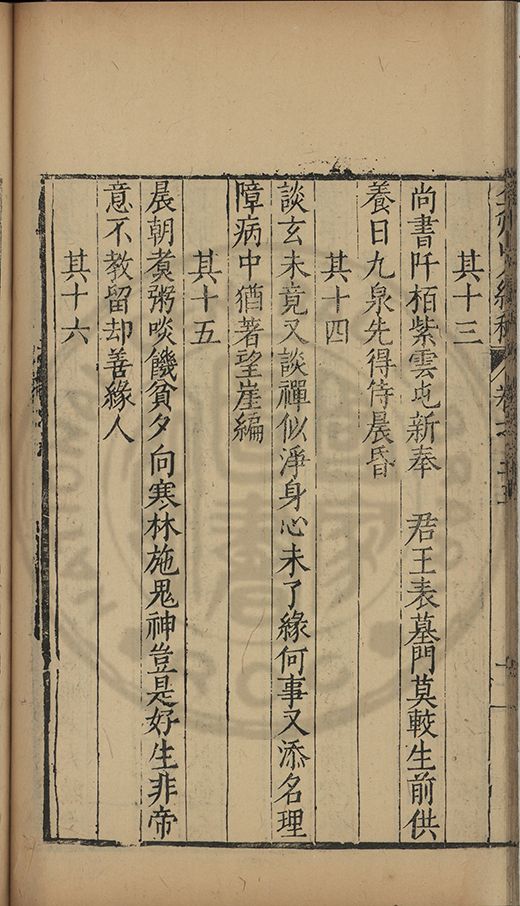 其十三
尚書阡栢紫雲屯新奉　君王表墓門莫較生前供
養日九泉先得侍晨昏
其十四
談玄未竟又談禪似淨身心未了緣何事又添名理
障病中猶著望崖編
其十五
晨朝煑粥啖饑貧夕向寒林施鬼神豈是好生非帝
意不教留却善緣人
其十六